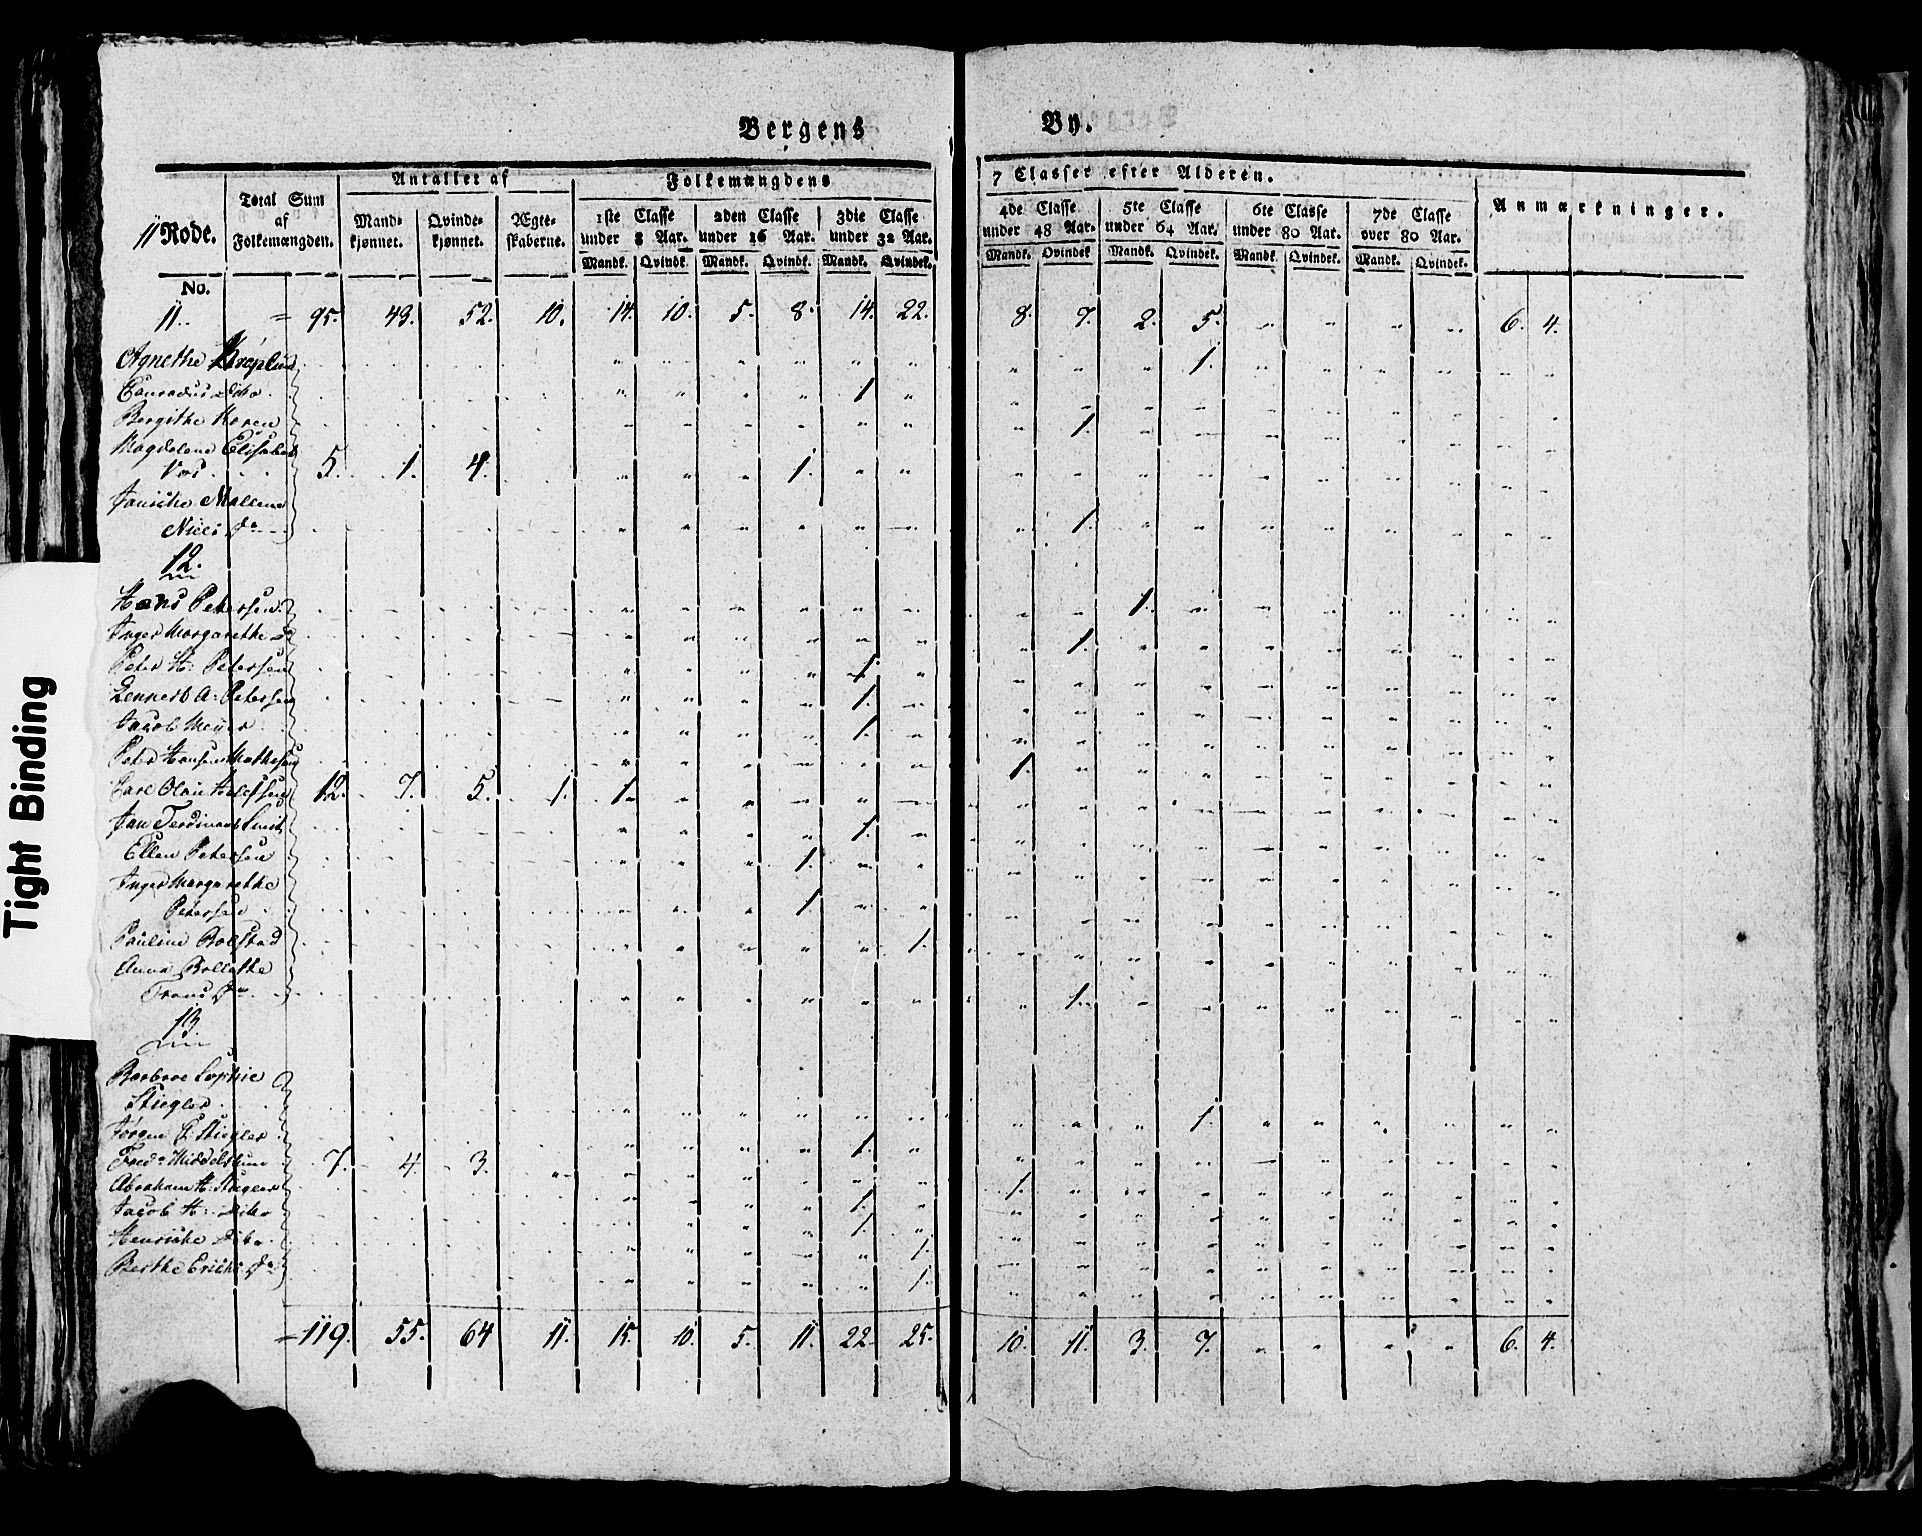 Bergens By.
11 Rode.
Total Sum af Folkemængden.
Antallet af
Mandkjønnet. Qvindekjønnet. Ægteskaberne.
Folkemængdens 7 Classer efter Alderen.
1ste Classe under 8 Aar. 2den Classe under 16 Aar. 3die Classe under 32 Aar. 4de Classe under 48 Aar. 5te Classe under 64 Aar. 6te Classe under 80 Aar. 7de Classe over 80 Aar.
Mandk. Qvindek. Mandk. Qvindek. Mandk. Qvindek. Mandk. Qvindek. Mandk. Qvindek. Mandk. Qvindek. Mandk. Qvindek.
Anmærkninger.
No.
11. = 95. 43. 52. 10. 14. 10. 5. 8. 14. 22. 8. 7. 2. 5. " " " " 6. 4.
Agnethe 1.
Conradus Dito 1
Bergithe Koren 1.
Magdelene Elisabet
Vos 5. 1. 4. 1.
Malene
Niels Dr 1.
12.
Hans Petersen 1.
Inger Margarethe do 1.
Peter H: Petersen 1.
Lennert A: Petersen 1.
Jacob Meyer 1.
Peter Hansen Mathesen 1.
Carl Olai 12. 7. 5. 1. 1.
Jan Ferdinant Smit 1.
Ellen Petersen 1.
Inger Margarethe
Petersen 1.
Pauline Bolstad 1.
Anna Bollethe
Frans Dr 1.
13.
Barbroe Sophie
Stiegler 1.
Jørgen P: Stiegler 1.
Fred: Middelthun 7. 4 3. 1.
Abraham H: Stiegler 1.
Jacob H: Dito 1.
Henriche Dito 1.
Berthe Erichs Dr 1.
= 119. 55. 64 11. 15. 10. 5. 11. 22. 25. 10. 11. 3. 7. " " " " 6. 4.
Tight Binding